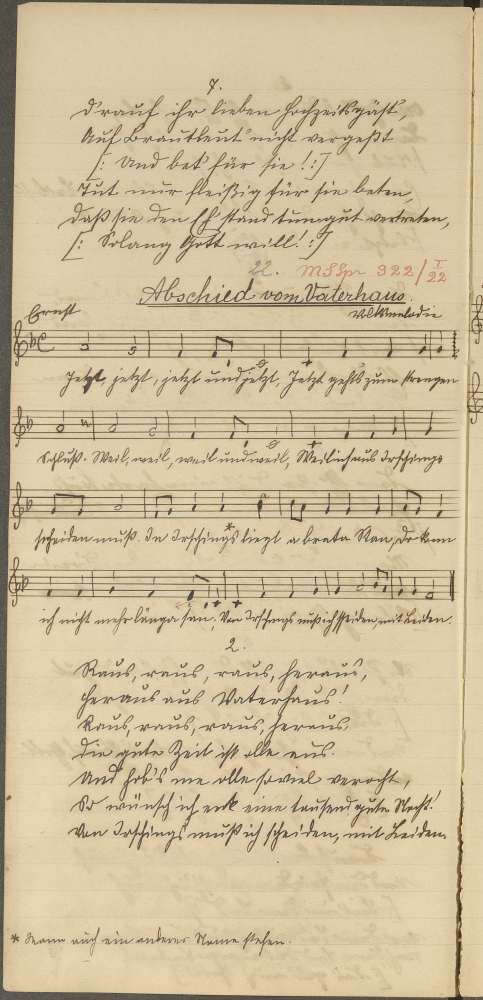 7.
Drauf ihr lieben Hochzeitsgäst',
Auf Brautleut' nicht vergeßt
[: Und bet' für sie! :]
Tut nur fleißig für sie beten,
Daß sie den Eh'stand tun gut vertreten,
[: Solang Gott will! :]
22. MSSpr 322/I 22
Abschied vom Vaterhaus.
Ernst
Volksmelodie
Jetzt, jetzt, jetzt und jetzt, Jetzt geht's zum strengen
Schluß. Weil, weil, weil und weil, Weil ich aus Irschings
scheiden muß. In Irschings* liegt a breata Stan, Do kann
ich nicht mehr länga san, Von Irschings muß ich scheiden, mit Leiden.
2.
Raus, raus, raus, heraus,
Heraus aus Vaterhaus!
Raus, raus, raus, heraus,
Die gute Zeit ist alle aus.
Und hob's me olle soviel veracht,
So wünsch ich enk eine tausend gute Nacht!
Von Irschings muß ich scheiden, mit Leiden.
* Kann auch ein anderer Name stehen.